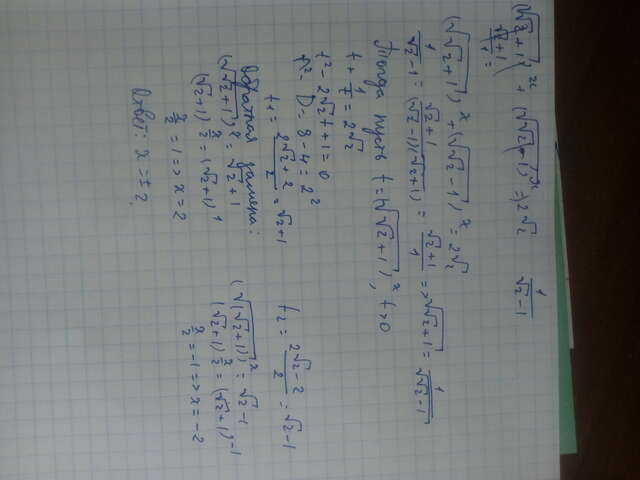 (√(√2+1))^x + (√(√2-1))^x = 2√2    1/(√2-1)
(√(√2+1))^x + (√(√2-1))^x = 2√2
1/(√2-1) = (√2+1)/((√2-1)(√2+1)) = (√2+1)/1 => √(√2+1) = 1/√(√2-1)
Тогда пусть t = (√(√2+1))^x, t>0
t + 1/t = 2√2
t² - 2√2t + 1 = 0
D = 8 - 4 = 2²
t₁ = (2√2+2)/2 = √2+1    t₂ = (2√2-2)/2 = √2-1
Обратная замена:
(√(√2+1))^x = √2+1    (√(√2+1))^x = √2-1
(√2+1)^(x/2) = (√2+1)^1    (√2+1)^(x/2) = (√2+1)^-1
x/2 = 1 => x = 2    x/2 = -1 => x = -2
Ответ: x = ±2